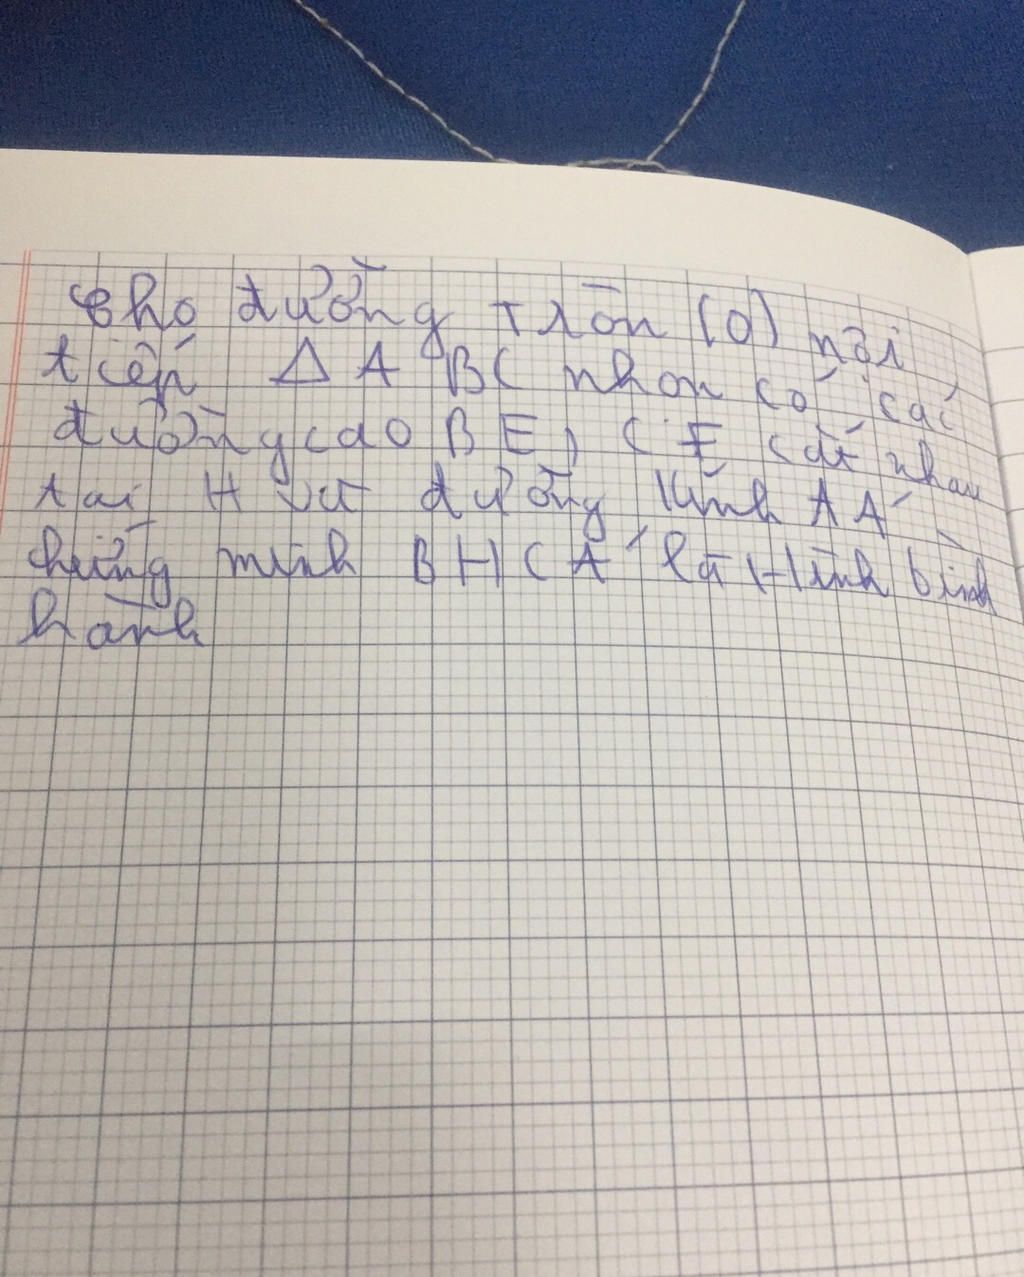 Cho đường tròn (O) nội
tiếp Δ ABC nhọn có các
đường cao BE, CF cắt nhau
tại H vẽ đường kính AA'
chứng minh BHCA' là Hình bình
hành